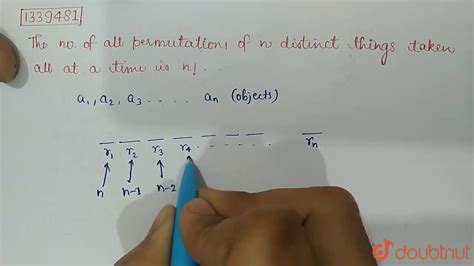 1339481
The no. of all permutation, of n distinct things taken
all at a time is n! .
a1, a2, a3 . . . . . an (objects)
r1 r2 r3 r4 . . . . . . . rn
n n-1 n-2
doubtnut